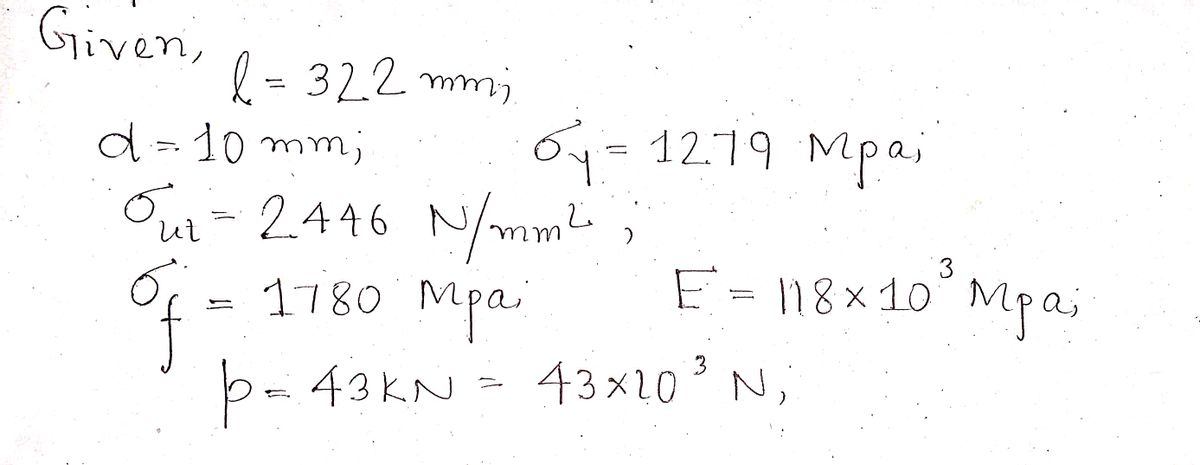 Given,
l = 322 mm;
d = 10 mm; σy = 1279 Mpa;
σut = 2446 N/mm²;
σf = 1780 Mpa; E = 118×10³ Mpa;
p = 43KN = 43×10³ N;